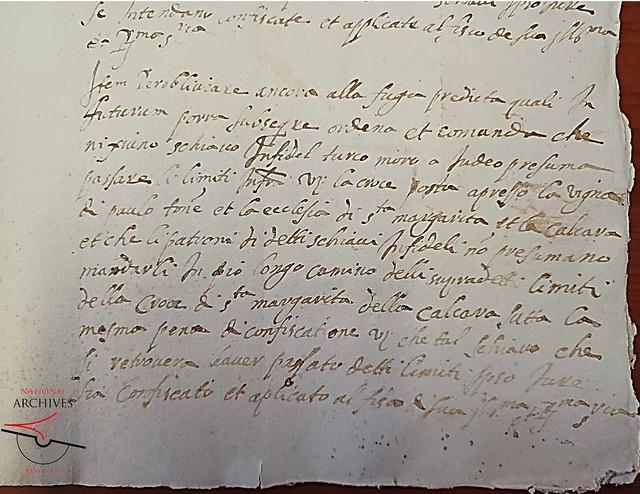 se Intendano confiscate et applicate al fisco de sua Ill.ma
et R.ma S.ria
Item per obliviare ancora alla fuga predicta quali In
futurum porra subseqre ordena et comanda che
niguino schiavo Infidel turco moro o Judeo presuma
passare li limiti Infra vz la croce posta apresso la vigna
di paulo et la ecclesia di s.ta margarita et la calcara
et che li patroni di detti schiavi Infideli no presumano
mandarli In più longo camino delli supradetti limiti
della Croce di s.ta margarita della calcara sutta la
mesma pena di confiscatione vz che tal schiavo che
si retrovera haver passato detti limiti ipso Jure
sia confiscati et aplicato al fisco de sua Ill.ma et R.ma S.ria
NATIONAL
ARCHIVES
MALTA